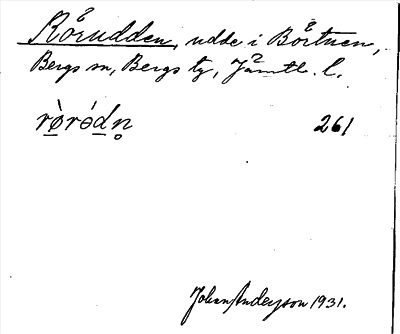 Rörudden, udde i Börtnen,
Bergs sn, Bergs tg, Jämtl. l.
rø̀rǿdn̥ 261
Johan Anderson 1931.